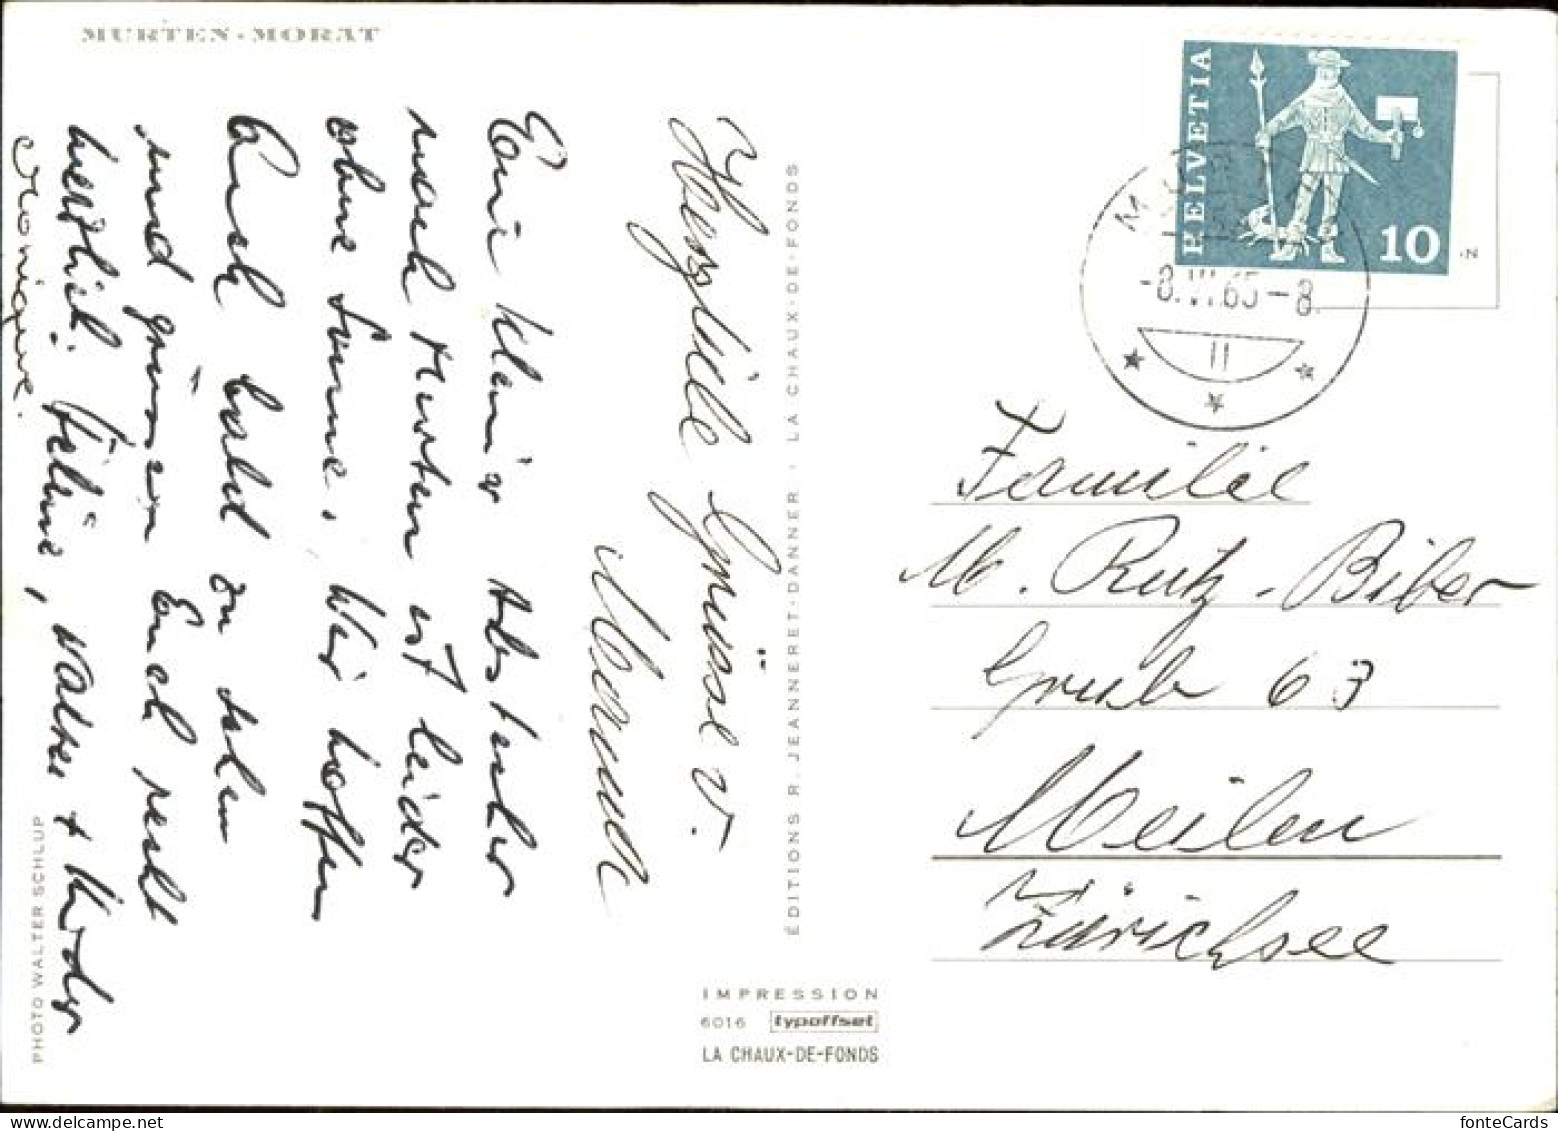 MURTEN - MORAT
Herzliche Grüsse v.
Ein kleiner Abstecher
nach Murten ist leider
ohne Sonne. Wir hoffen
Euch bald zu sehen
und grüssen Euch recht
herzlich: Heline, Walter + Kinder
Monique.
PHOTO WALTER SCHLUP
ÉDITIONS R. JEANNERET-DANNER · LA CHAUX-DE-FONDS
IMPRESSION
6016 typoffset
LA CHAUX-DE-FONDS
HELVETIA
10
-8.VI.65-8.
11
Familie
M. Rutz-Biber
Grub 63
Meilen
Zürichsee
fonteCards